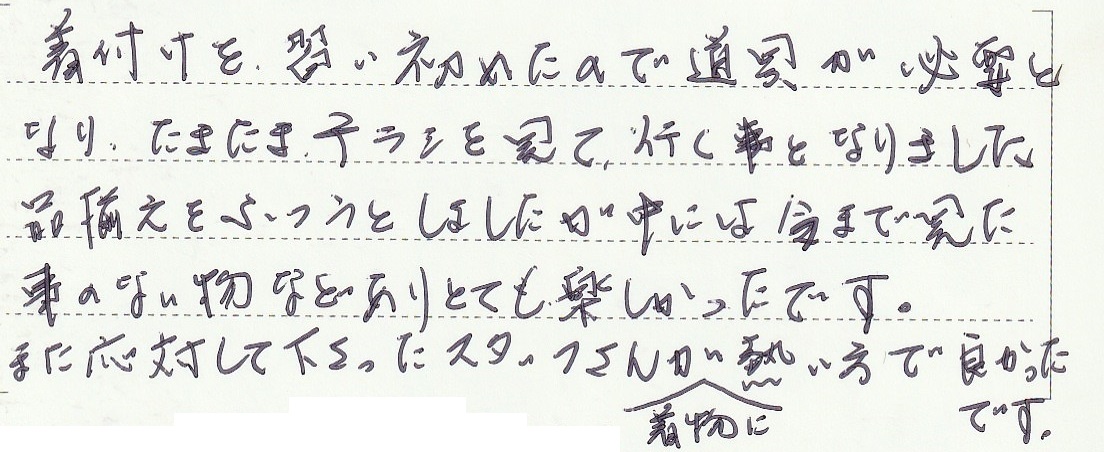 着付けを、習い初めたので道具が必要と
なり、たまたま、チラシを見て、行く事となりました。
品揃えをふつうとしましたが中には今まで見た
事のない物などありとても楽しかったです。
また応対して下さったスタッフさんが着物に熱い方で良かった
です。